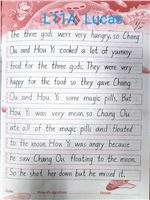 L21A Lucas
The three gods were very hungry, so Chang
Ou and How Yi cooked a lot of yummy
food for the three gods. They were very
happy for the food so they gave Chang
Ou and How Yi some magic pills, But
How Yi was very mean, so Chang Ou
ate all of the magic pills and floated
to the moon. How Yi was angry because
he saw Chang Ou floating to the moon.
So he shot her down but he missed it.